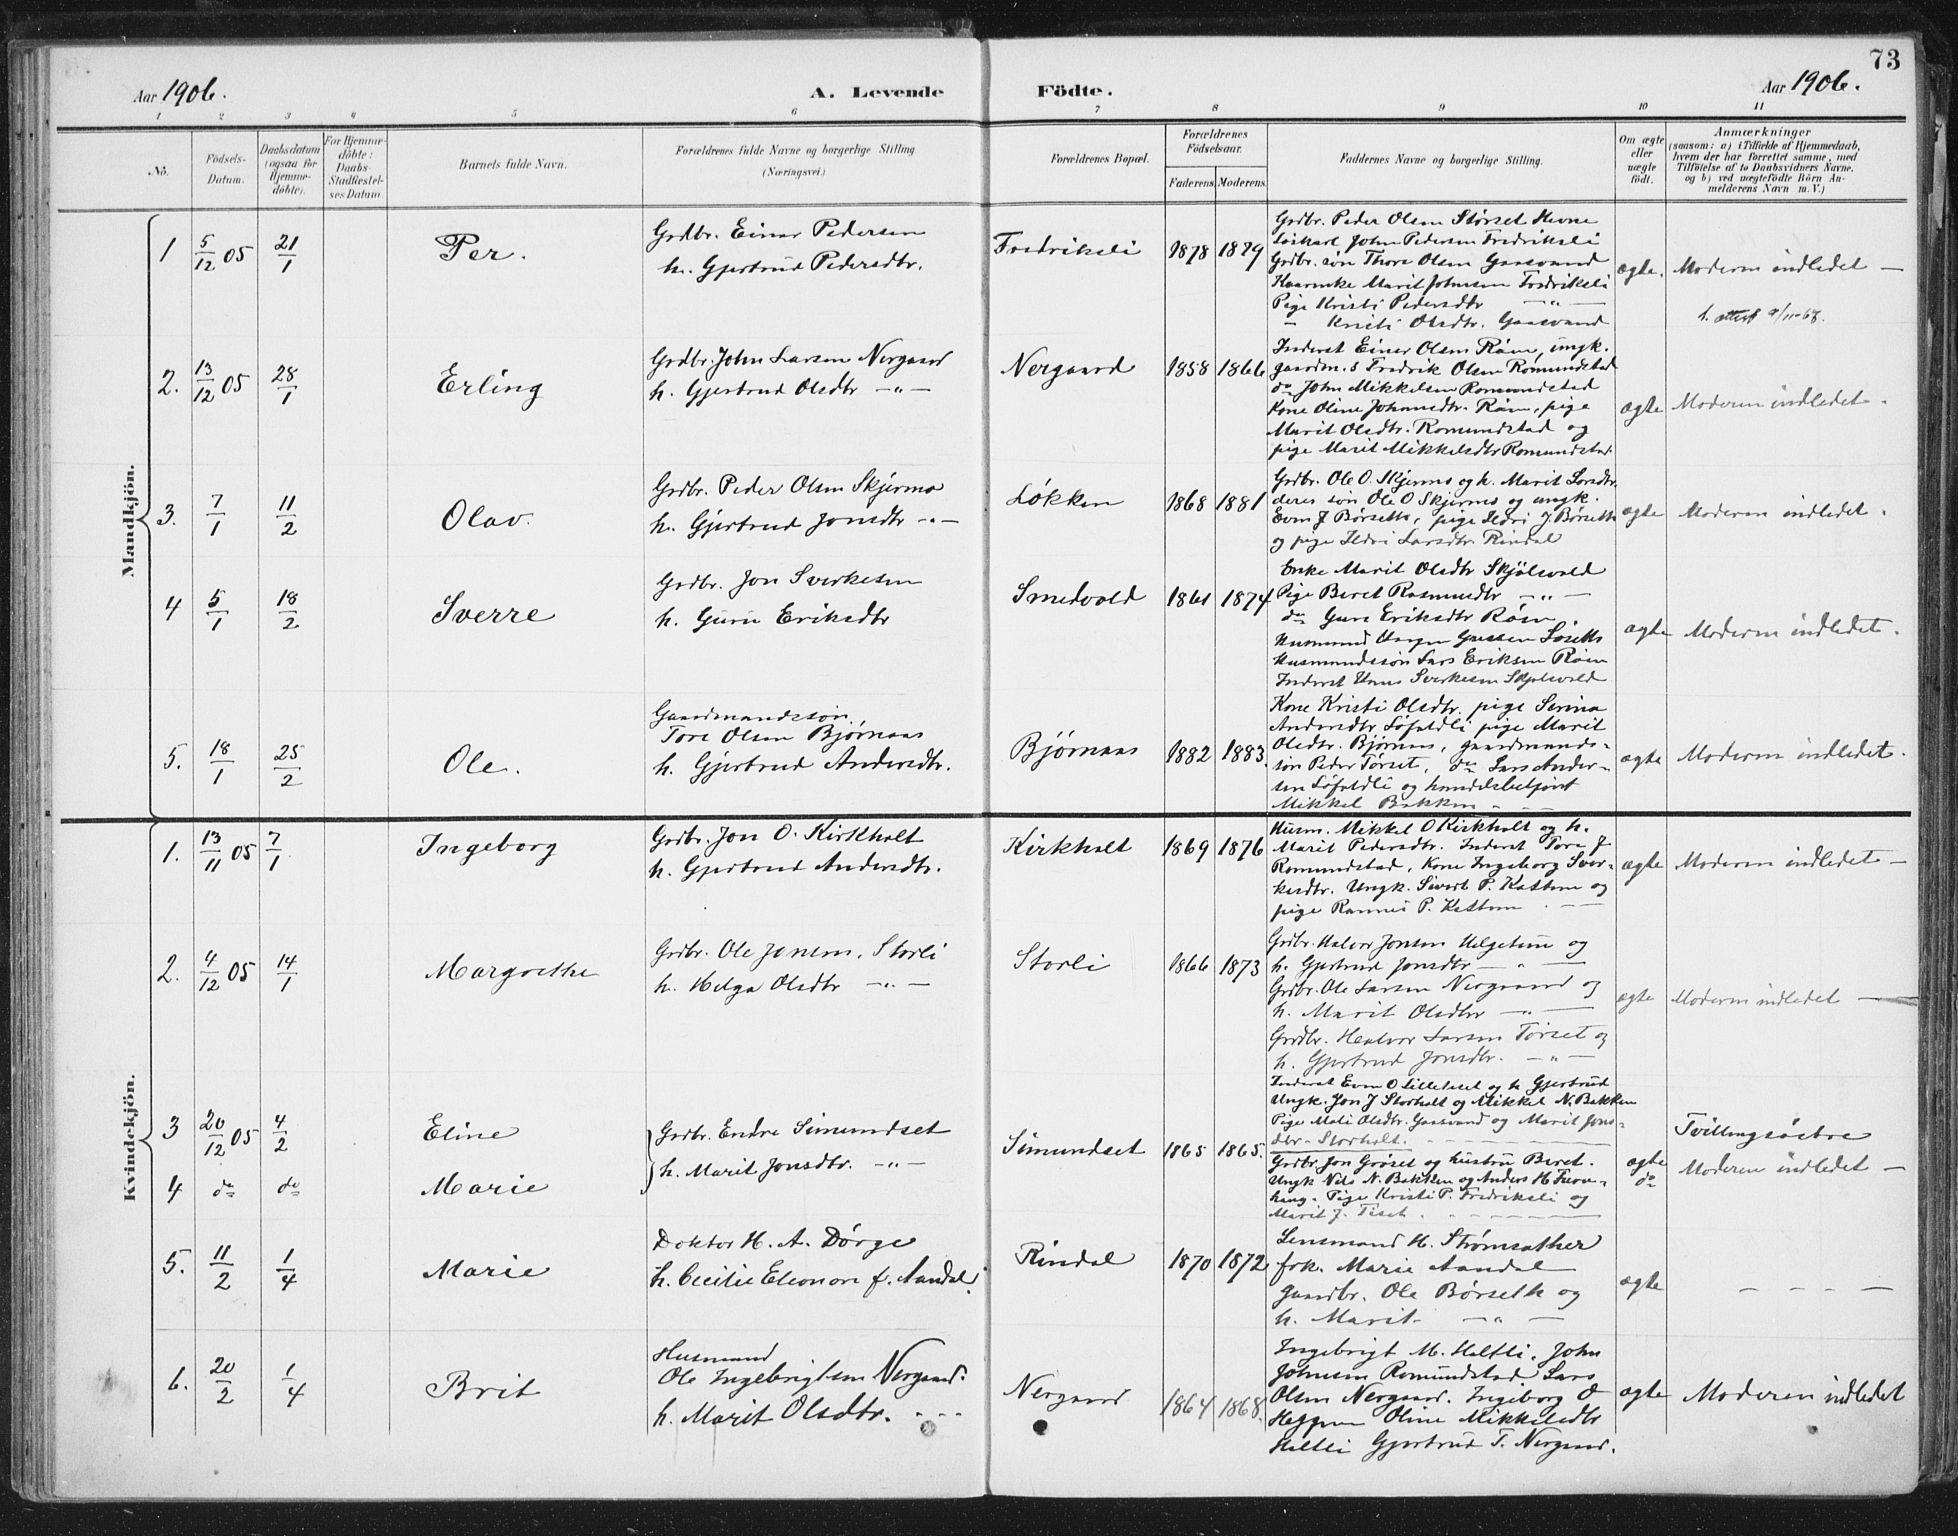 73
Aar 1906. A. Levende Födte. Aar 1906.
1 2 3 4 5 6 7 8 9 10 11
No.
Födsels-
Datum.
Daabsdatum
(ogsaa for
Hjemme-
döbte).
For Hjemme-
döbte:
Daabs-
Stadfæstel-
ses Datum.
Barnets fulde Navn.
Forældrenes fulde Navne og borgerlige Stilling
(Næringsvei.)
Forældrenes Bopæl.
Forældrenes
Födselsaar.
Faderens. Moderens.
Faddernes Navne og borgerlige Stilling.
Om ægte
eller
uægte
födt.
Anmærkninger
(saasom: a) i Tilfælde af Hjemmedaab,
hvem der har forrettet samme, med
Tilföielse af to Daabsvidners Navne,
og b) ved uægtefödte Börn An-
melderens Navn m. V.)
Mandkjön.
1 5/12 05 21/1 Per.
Grdbr. Einar Pedersen
h. Gjertrud Pedersdtr.
Fredriksli 1878 1879
Grdbr. Peder Olsen Størset Hevne
John Pedersen Fredriksli
Grdbr. søn Thore Olsen Gaasvand
Marit Johnsen Fredriksli
Pige Kristi Pedersdtr — " —
— Kristi Olsdtr. Gaasvand
ægte. Moderen indledet —
2. 13/12 05 28/1 Erling
Grdbr. John Larsen Nergaard
h. Gjertrud Olsdtr — " —
Nergaard 1858 1866
Inderst Einar Olsen Røen, ungk.
gaardm.s Fredrik Olsen Romundstad
do John Mikkelsen Romundstad
Kone Oline Johansdtr. Røen, pige
Marit Olsdtr. Romundstad og
pige Marit Mikkelsdtr Romundstad.
ægte Moderen indledet.
3. 7/1 11/2 Olav.
Grdbr. Peder Olsen Skjermo
h. Gjertrud Jonsdtr — " —
Løkken 1868 1881
Grdbr. Ole O. Skjermo og h. Marit Larsdtr.
deres søn Ole O Skjermo og ungk.
Even J Børseth, pige Ildri J. Børseth
og pige Ildri Larsdtr Rindal
ægte Moderen indledet.
4 5/1 18/2 Sverre
Grdbr. Jon Sverkesen
h. Guru Eriksdtr
Smedvold 1861 1874
Enke Marit Olsdtr Skjølsvold
Pige Beret Rasmusdtr — " —
do Guru Eriksdtr Røen.
Husmandssøn Lars Eriksen Røen
Inderst Hans Sverkesen Skjølsvold
ægte Moderen indledet.
5. 18/1 25/2 Ole.
Gaardmandssøn,
Tore Olsen Bjørnaas
h. Gjertrud Andersdtr.
Bjørnaas 1882 1883.
Kone Kristi Olsdtr. pige Serina
Andersdtr Løfaldli pige Marit
Olsdtr. Bjørnaas, gaardmands-
søn Peder Tørset, do Lars Ander-
sen Løfaldli og handelsbetjent
Mikkel Bakken
ægte Moderen indledet.
Kvindekjön.
1. 13/11 05 7/1 Ingeborg
Grdbr. Jon O. Kirkholt
h. Gjertrud Andersdtr.
Kirkholt 1869 1876
Husm. Mikkel O Kirkholt og h.
Marit Pedersdtr. Inderst Tore J
Romundstad, Kone Ingeborg Sver-
kesdtr. Ungk. Sivert P. Kattum og
pige Rannei P. Kattum
ægte Moderen indledet —
2. 4/12 05 14/1 Margrethe
Grdbr. Ole Jonsen. Storli
h. Helga Olsdtr — " —
Storli 1866 1873
Grdbr. Halvor Jonsen Helgetun og
h. Gjertrud Jonsdtr — " —
Grdbr. Ole Larsen Nergaard og
h. Marit Olsdtr — " —
Grdbr. Halvor Larsen Tørset og
h. Gjertrud Jonsdtr. — " —
ægte Moderen indledet —
3 20/12 05 4/2 Eline
Grdbr. Endre Simundset
h. Marit Jonsdtr. — " —
Simundset 1865 1865.
Inderst Even O Lilleløset og h Gjertrud
Ungk. Jon J Storholt og Mikkel N. Bakken
Pige Mali Olsdtr. Gaasvand og Marit Jons-
dtr. Storholt.
ægte Tvillingsøstre
4 do do Marie
Grdbr Jon Grøset og hustru Beret.
Ungk Nils N. Bakken og Anders H
haug. Pige Kristi P. Fredriksli og
Marit J. Tiset.
do Moderen indledet —
5. 11/2 1/4 Marie
Doktor H. A. Dørge
h. Cecilie Eleonore f. Aandal.
Rindal 1870 1872
Lensmand H. Strømsæther
frk. Marie Aandal
Gaardbr. Ole Børseth og
h. Marit — " —
ægte — — — —
6. 20/2 1/4 Brit
Husmand
Ole Ingebrigtsen Nergaard.
h. Marit Olsdtr.
Nergaard 1864 1868.
Ingebrigt M. Heltli, John
Johnsen Romundstad Lars
Olsen Nergaard. Ingeborg O
Heggem Oline Mikkelsdtr
Heltli Gjertrud T. Nergaard.
ægte Moderen indledet